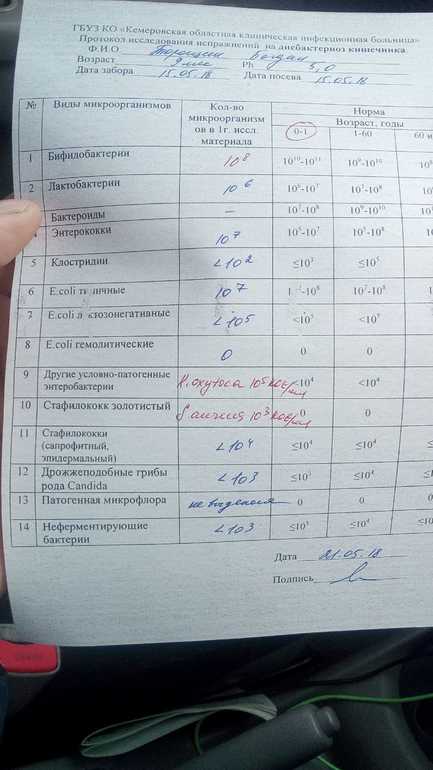 ГБУЗ КО «Кемеровская областная клиническая инфекционная больница»
Протокол исследования испражнений на дисбактериоз кишечника
Ф.И.О Богдан
Возраст Ph 5,0
Дата забора 15.05.18 Дата посева 15.05.18
№ Виды микроорганизмов Кол-во микроорганизм ов в 1г. иссл. материала Норма
Возраст, годы
0-1 1-60 60 и
1 Бифидобактерии 10⁸ 10¹⁰-10¹¹ 10⁹-10¹⁰
2 Лактобактерии 10⁶ 10⁶-10⁷ 10⁷-10⁸
Бактероиды – 10⁷-10⁸ 10⁹-10¹⁰
Энтерококки 10⁷ 10⁵-10⁷ 10⁵-10⁸
5 Клостридии <10² ≤10³ ≤10⁵
6 E.coli типичные 10⁷ -10⁸ 10⁷-10⁸
7 E.coli лактозонегативные <10⁵ <10⁵ <10⁵
8 E.coli гемолитические 0 0 0
9 Другие условно-патогенные энтеробактерии K. oxytoca 10⁵ кое/мл <10⁴ <10⁴
10 Стафилококк золотистый S aureus 10³ кое/мл 0 0
11 Стафилококки (сапрофитный, эпидермальный) <10⁴ ≤10⁴ ≤10⁴
12 Дрожжеподобные грибы рода Candida <10³ ≤10³ ≤10⁴
13 Патогенная микрофлора не выделена 0 0
14 Неферментирующие бактерии <10³ ≤10³ ≤10⁴
Дата 21.05.18
Подпись